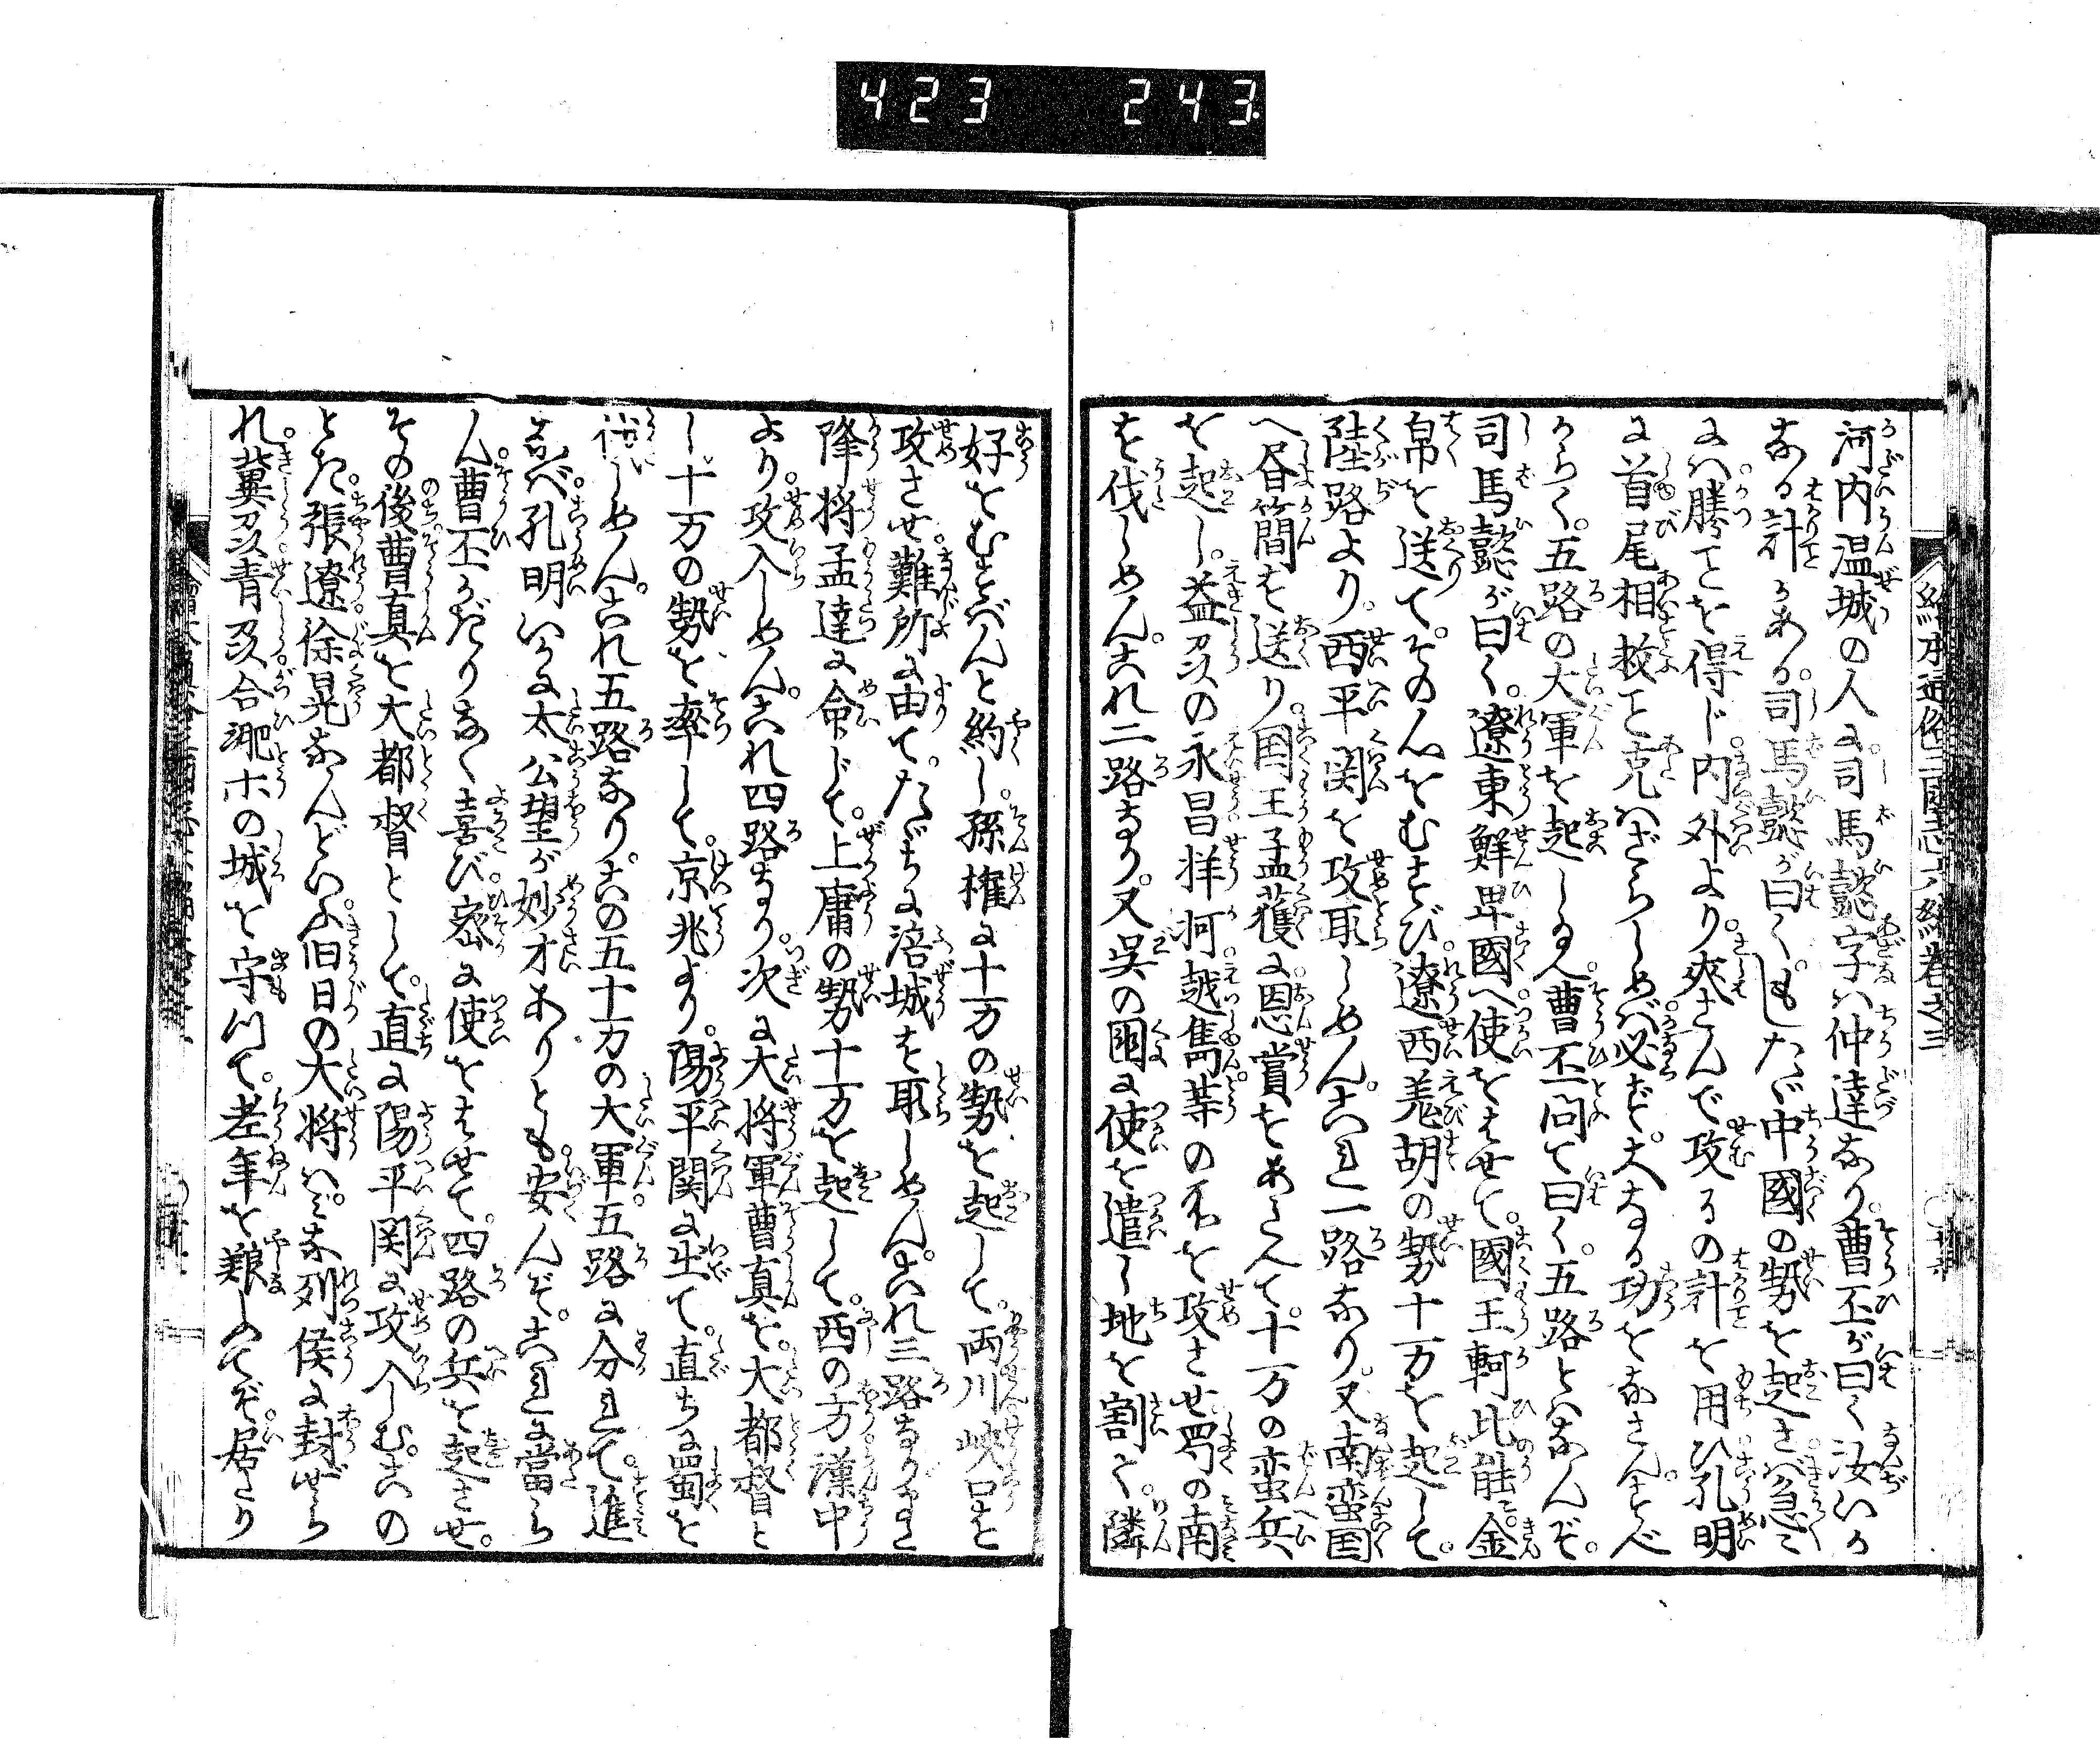 423 243
繪本通俗三國志六編卷之三
河内温城の人に司馬懿字ハ仲達なり。曹丕が曰く汝いか
なる計かある。司馬懿が曰く。もしたゞ中國の勢を起さバ急に
にハ勝ことを得じ内外より。夾さんで攻るの計を用ひ孔明
に首尾相救こと克ハざらしめバ必ず。大なる功をなさん。すべ
からく。五路の大軍を起しるべ。曹丕問て曰く。五路とハなんぞ。
司馬懿が曰く。遼東鮮卑國へ使をはせて。國王軻比能に。金
帛を送て。その心をむすび。遼西羌胡の勢十万を起して。
陸路より。西平関を攻取しめん。これ一路なり。又南蛮国
へ昏簡を送り。国王孟獲に。恩賞をあたへて。十万の蛮兵
を起し。益州の永昌牂牁越雋等の不を攻させ蜀の南
を伐しめん。これ二路なり。又呉の國に使を遣し地を割て。隣
好をむすバんと約し。孫権に十万の勢を起して。両川峽口を
攻させ難所に由て。たゞちに涪城を取しめん。これ三路なり。又
降将孟達に命じて。上庸の勢十万を起して。西の方漢中
より。攻入しめん。これ四路なり。次に大将軍曹真を。大都督と
し。十万の勢を率して。京兆より。陽平関に出て。直ちに蜀を
伐しめん。これ五路なり。この五十万の大軍五路に分れて。進
まバ。孔明いかに太公望が妙才ありとも。安んぞ。これに當ら
ん。曹丕かぎりなく喜び。密に使をはせて。四路の兵を起させ。
その後曹真を大都督として。直に陽平関に攻入しむ。この
とき。張遼徐晃なんどいふ旧日の大将ハ。みな列侯に封ぜら
れ。冀州青州合淝ホの城を守つて。老年を養ふてぞ居たり